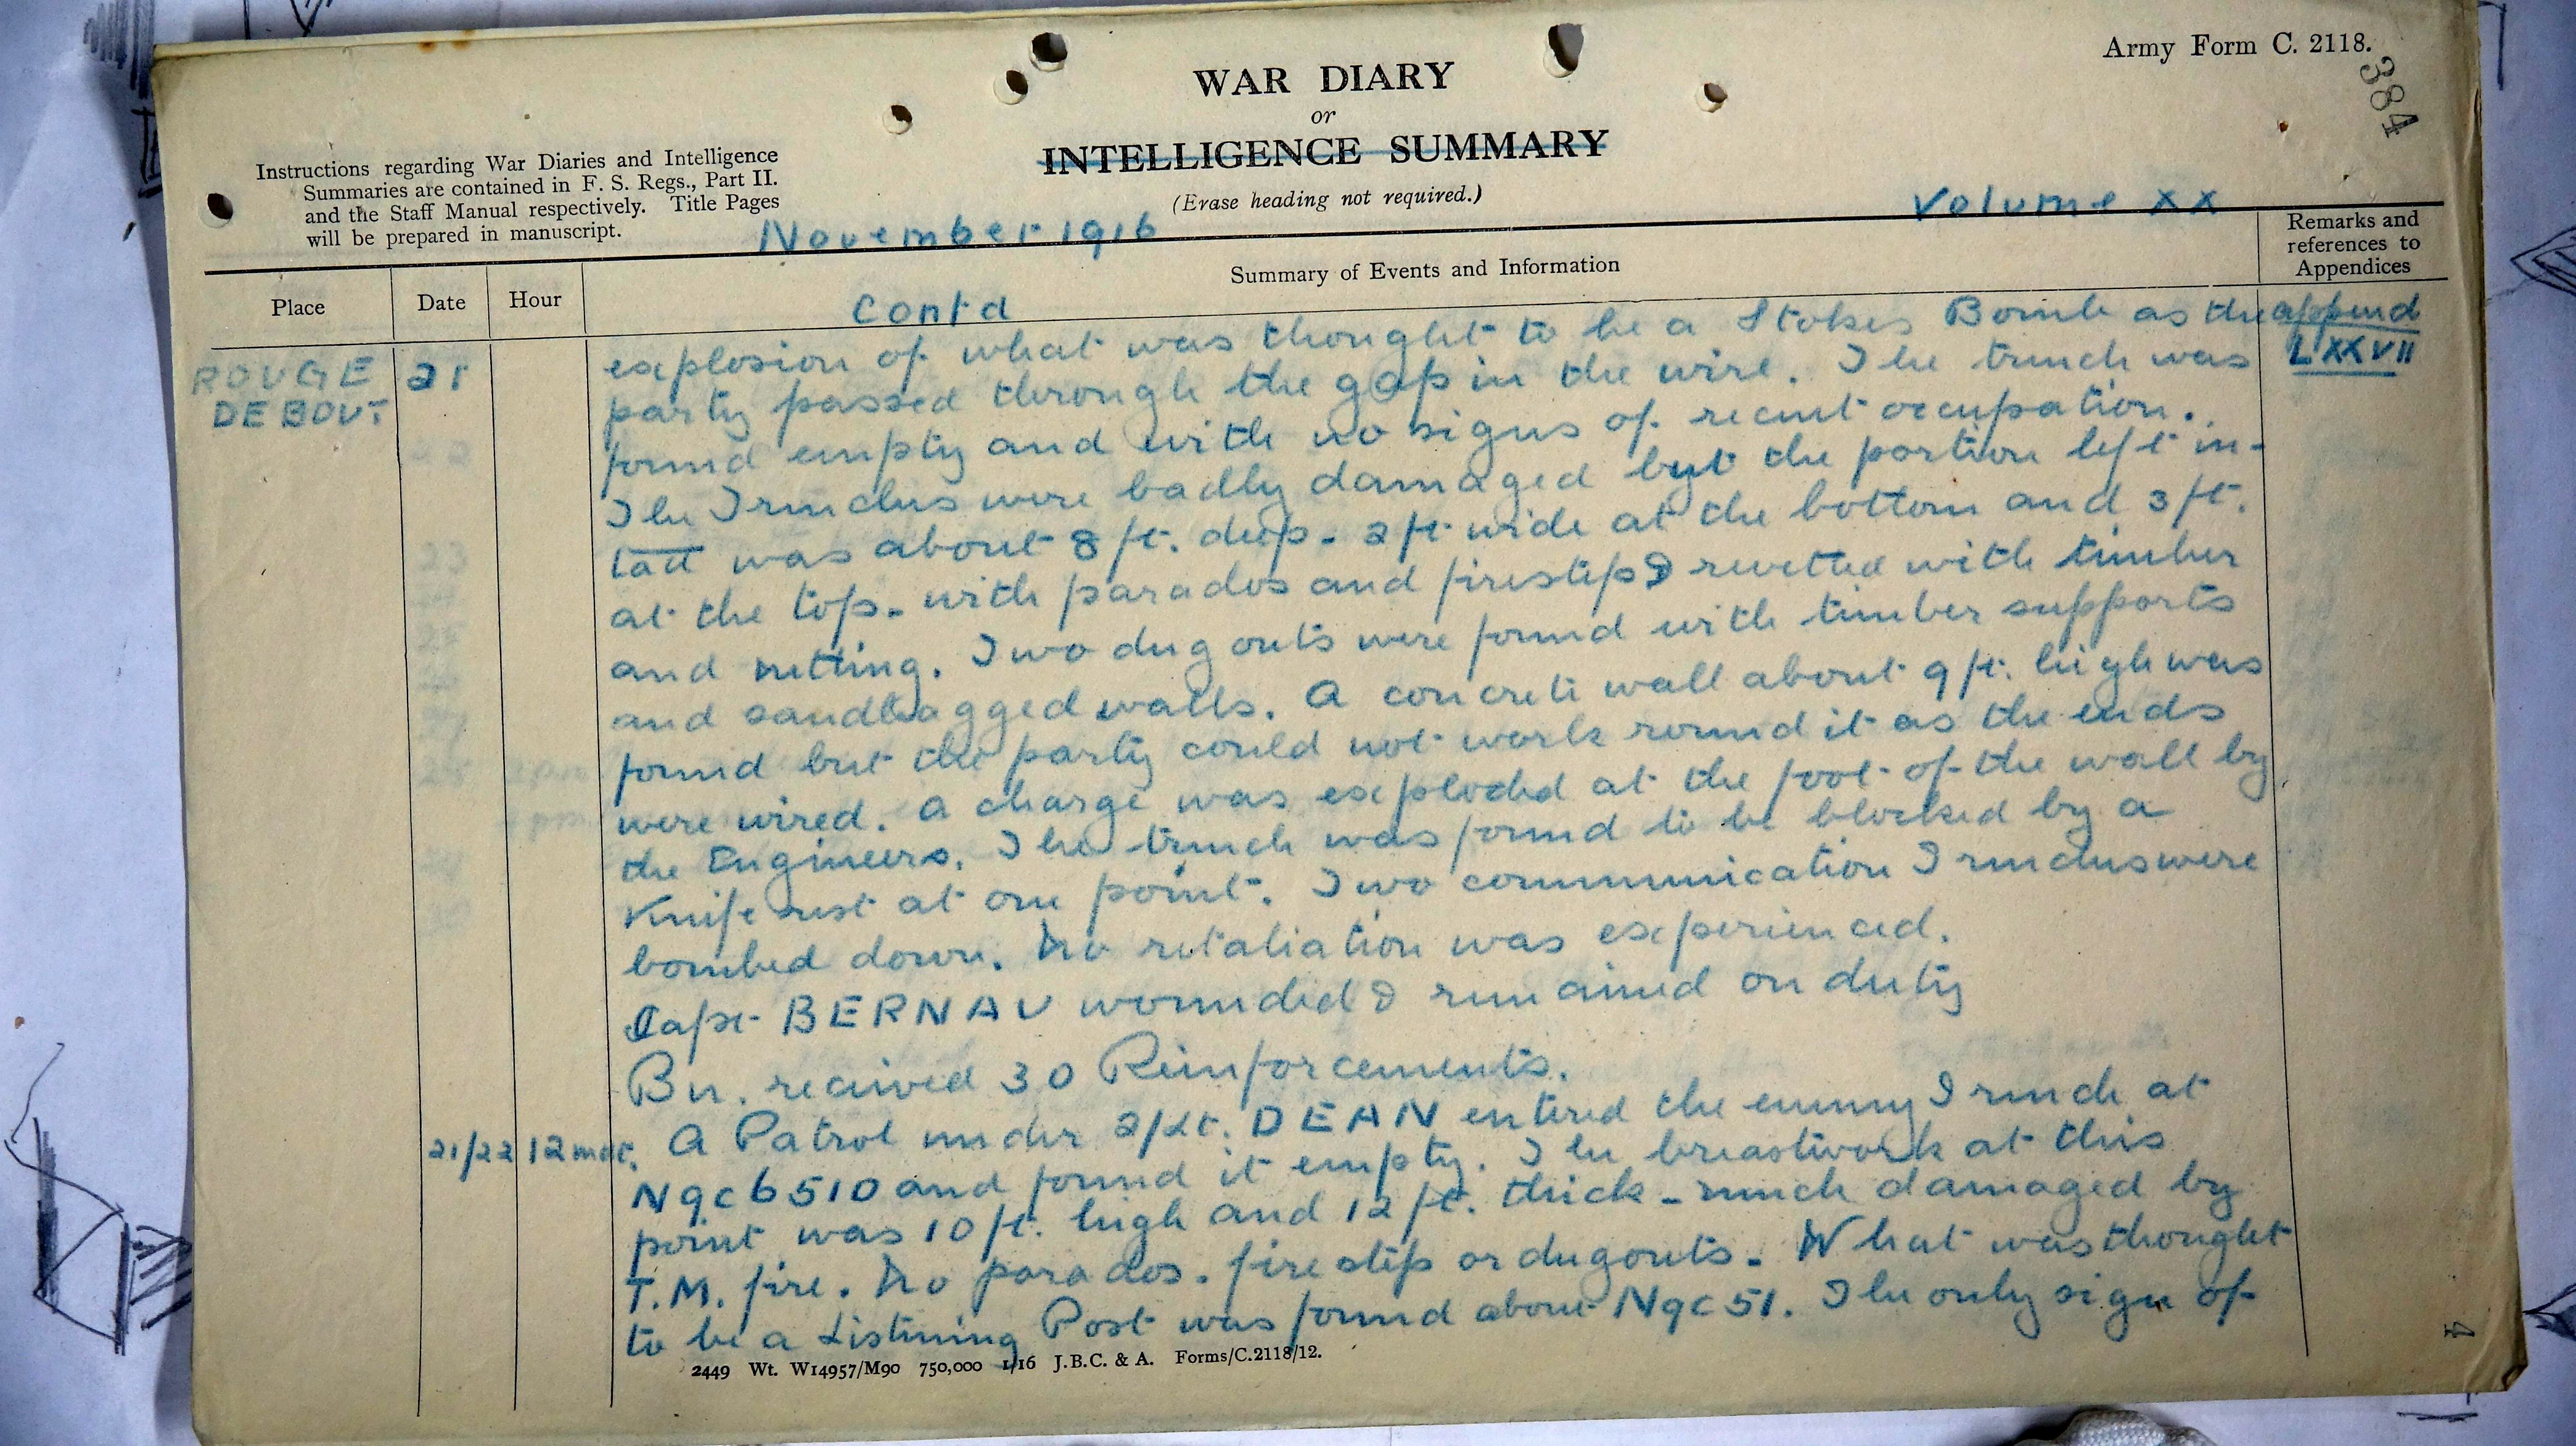 Army Form C. 2118.
384
WAR DIARY
or
INTELLIGENCE SUMMARY
(Erase heading not required.)
Instructions regarding War Diaries and Intelligence
Summaries are contained in F. S. Regs., Part II.
and the Staff Manual respectively. Title Pages
will be prepared in manuscript.
November 1916
Volume XX
Place
Date
Hour
Summary of Events and Information
Remarks and
references to
Appendices
Cont'd
ROUGE
DE BOUT
21
append
LXXVII
explosion of what was thought to be a Stokes Bomb as the
party passed through the gap in the wire. The trench was
found empty and with no signs of recent occupation.
The Trenches were badly damaged but the portion left in-
tact was about 8 ft. deep - 2 ft wide at the bottom and 3 ft.
at the top - with parados and firesteps revetted with timber
and netting. Two dug outs were found with timber supports
and sandbagged walls. A concrete wall about 9 ft. high was
found but the party could not work round it as the ends
were wired. A charge was exploded at the foot of the wall by
the Engineers. The trench was found to be blocked by a
Knife rest at one point. Two communication Trenches were
bombed down. No retaliation was experienced.
Capt BERNAU wounded & remained on duty
Bn. received 30 Reinforcements.
21/22 12 mdt. A Patrol under 2/Lt. DEAN entered the enemy Trench at
N9c6510 and found it empty. The breastwork at this
point was 10 ft. high and 12 ft. thick - much damaged by
T.M. fire. No parados. fire step or dugouts. What was thought
to be a Listening Post was found about N9c51. The only sign of
2449 Wt. W14957/M90 750,000 1/16 J.B.C. & A. Forms/C.2118/12.
4